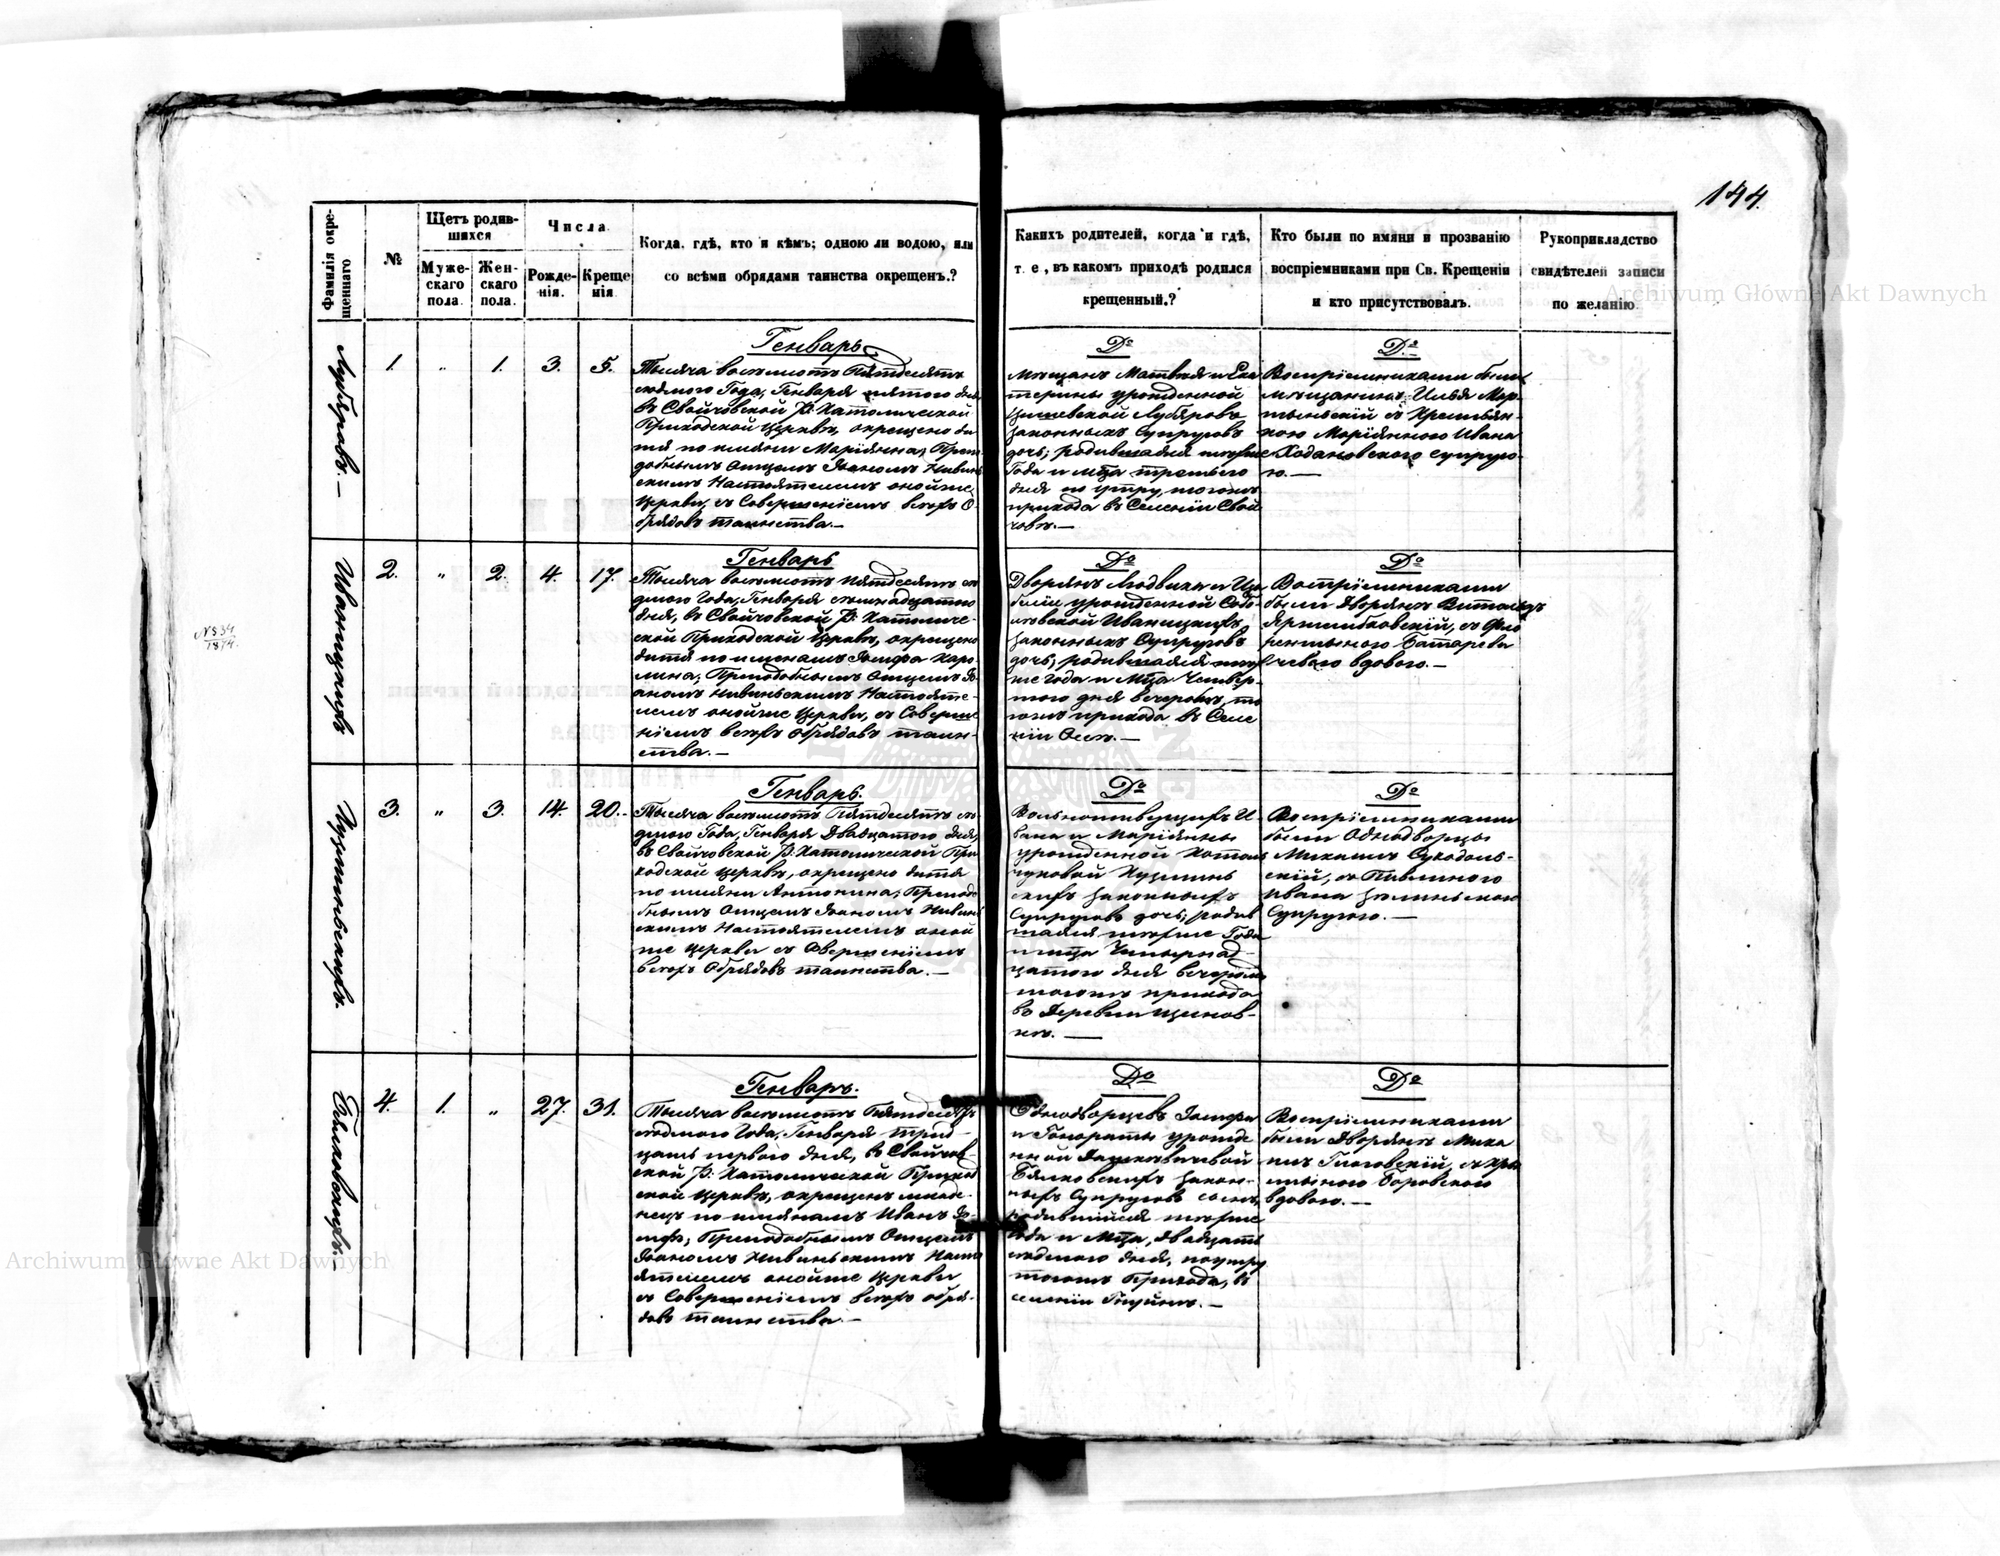 144.
Фамилія окре-
щеннаго
№
Щетъ родив-
шихся
Муже-
скаго
пола.
Жен-
скаго
пола.
Числа
Рожде-
нія.
Креще
нія
Когда, гдѣ, кто и кѣмъ; одною ли водою, или
со всѣми обрядами таинства окрещенъ.?
Каких родителей, когда и гдѣ,
т. е, въ какомъ приходѣ родился
крещенный.?
Кто были по имяни и прозванію
воспріемниками при Св. Крещеніи
и кто присутствовалъ.
Рукоприкладство
свидѣтелей записи
по желанію.
Archiwum Główne Akt Dawnych
1. „ 1. 3. 5.
Генварь
Тысяча восемьсотъ Пятдесятъ
седмого Года, Генваря пятого дня
въ Свойчовской Р: Католической
Приходской Церквѣ, окрещено ди
тя по имяни Маріянна, Препо
добнымъ Отцемъ Іоаномъ
скимъ Настоятелемъ оной же
Церкви, съ Совершеніемъ всехъ О-
брядовъ таинства.—
Dо
Мещанъ Матвея и Ека
терины урожденной
законныхъ Супруговъ
дочь; родившаяся тогоже
Года и Мца третьего
дня по утру, тогожъ
прихода въ Селеніи Свой
човѣ.—
Dо
Воспріемниками были
мещанинъ Илья Мар
тыньскій съ Крестьян-
кою Маріянною Ивана
Ходановского супруго-
ю.—
Иваницкихъ
2. „ 2. 4. 17.
Генварь
Тысяча восемьсотъ пятдесятъ се
дмого Года, Генваря семнадцатого
дня, въ Свойчовской Р: Католиче-
ской Приходской Церквѣ, окрещено
дитя по именамъ Іозефа Каро
лина; Преподобнымъ Отцемъ Іо
аномъ Настояте-
лемъ оной же Церкви, съ Соверше
ніемъ всехъ Обрядовъ таин-
ства.—
Dо
Дворянъ Людвика и Иза
белли урожденной Собо-
левской Иваницкихъ,
законныхъ Супруговъ
дочь; родившаяся того
же Года и Мца Четвер-
того дня вечеромъ, то
гожъ прихода въ Селе
ніи
Dо
Воспріемниками
были Дворянъ Витольдъ
съ Фло
рентыною
вдовою.—
№ 34
1874.
3. „ 3. 14. 20.
Генварь.
Тысяча восемьсотъ Пятдесятъ се
дмого Года, Генваря Двадцатого дня,
въ Свойчовской Р: Католической При
ходской Церквѣ, окрещено дитя
по имяни Антонина; Преподо
бнымъ Отцемъ Іоаномъ
скимъ Настоятелемъ оной
же Церкви съ Совершеніемъ
всехъ Обрядовъ таинства.—
Dо
Вольноотпущихъ И-
вана и Маріянны
урожденной
законныхъ
Супруговъ дочь; родив
шаяся тогоже Года
и мца Четырнад-
цатого дня вечеромъ
тогожъ прихода
въ Деревни
Dо
Воспріемниками
были Однодворцы
Михаилъ Суходоль-
скій, съ Павлиною
Ивана
Супругою.—
4. 1. „ 27. 31.
Генварь.
Тысяча восемьсотъ Пятдесятъ
седмого Года, Генваря трид-
цать первого дня, въ Свойчов-
ской Р: Католической Приход
ской Церквѣ, окрещенъ младе-
нецъ по имянамъ Иванъ Іо-
зефъ; Преподобнымъ Отцемъ
Іоаномъ Насто
ятелемъ оной же Церкви
съ Совершеніемъ всехъ обря-
довъ таинства.—
Dо
Однодворцевъ Іозефа
и Гонораты урожде
нной
закон-
ныхъ Супруговъ сынъ,
родившійся тогоже
Года и Мца, Двадцать
седмого дня, поутру
тогожъ Прихода, въ
селеніи
Dо
Воспріемниками
были Дворянъ Миха
илъ
Боровского
вдовою.—
Archiwum Główne Akt Dawnych